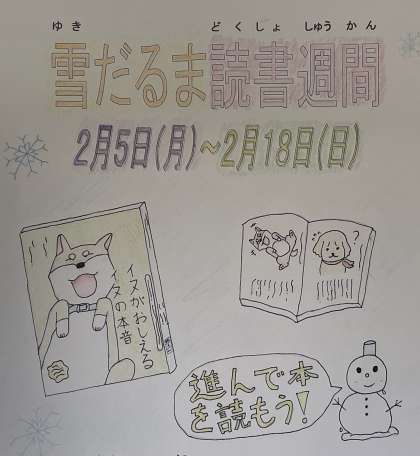 ゆき どくしょ しゅうかん
雪だるま読書週間
2月5日(月)~2月18日(日)
イヌがおしえる
イヌの本音
?
進んで本
を読もう!